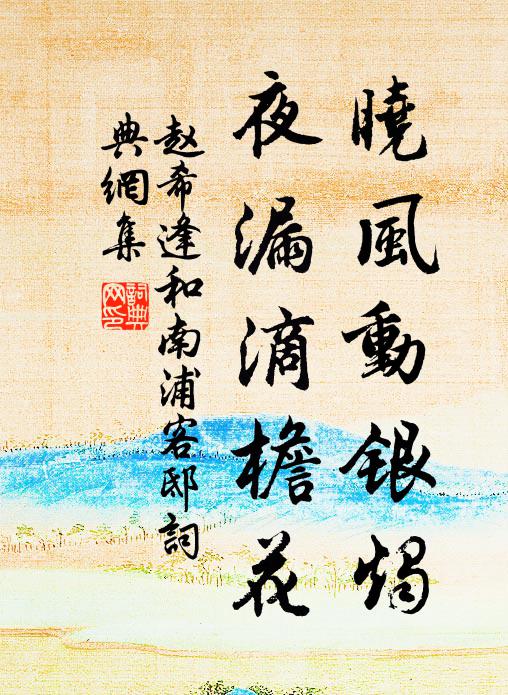 曉風動銀燭
夜漏滴檐花
赵希逢和南浦客邸詞
典網集
詞典網印